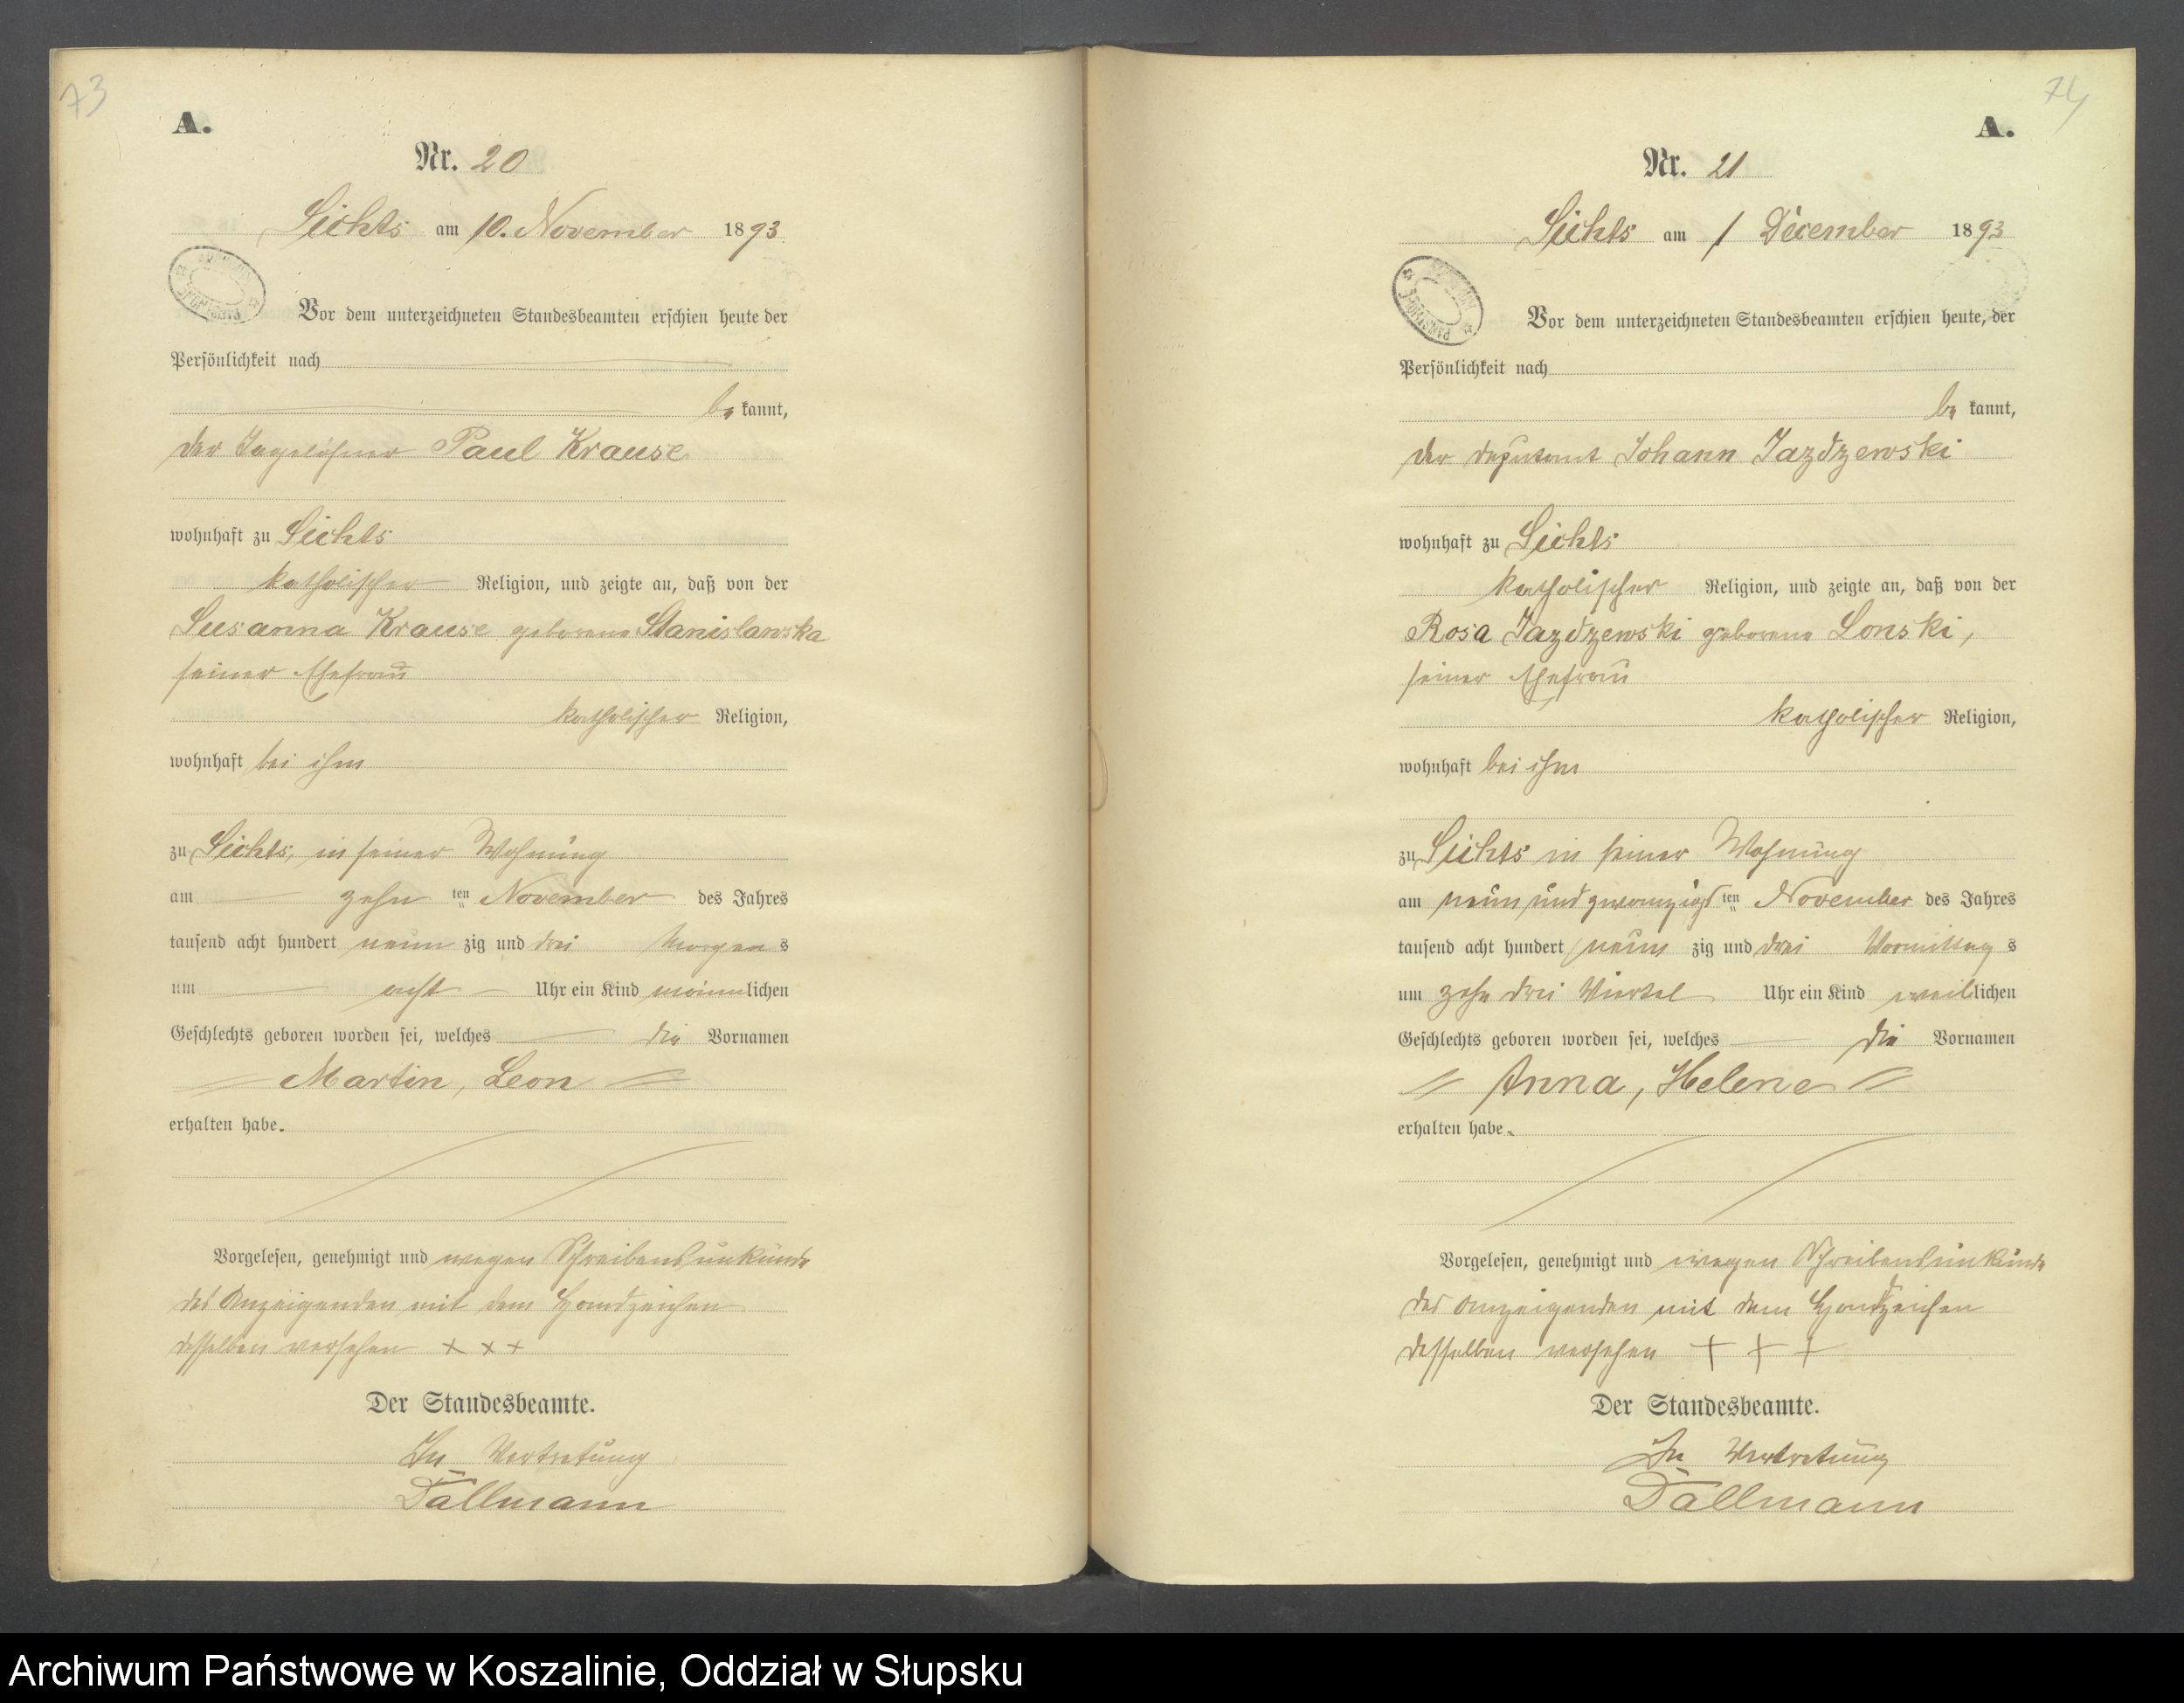 73
A.
Nr. 20
Lichts am 10. November 1893
Vor dem unterzeichneten Standesbeamten erschien heute der
Persönlichkeit nach
be kannt,
der Tagelöhner Paul Krause
wohnhaft zu Lichts
katholischer Religion, und zeigte an, daß von der
Susanna Krause geborene Stanislawska
seiner Ehefrau
katholischer Religion,
wohnhaft bei ihm
zu Lichts, in seiner Wohnung
am zehn ten November des Jahres
tausend acht hundert neun zig und drei Morgen s
um acht Uhr ein Kind männlichen
Geschlechts geboren worden sei, welches die Vornamen
Martin, Leon
erhalten habe.
Vorgelesen, genehmigt und wegen Schreibensunkunde
des Anzeigenden mit dem Handzeichen
desselben versehen + + +
Der Standesbeamte.
In Vertretung
Dallmann
74
A.
Nr. 21
Lichts am 1 December 1893
Vor dem unterzeichneten Standesbeamten erschien heute, der
Persönlichkeit nach
be kannt,
der Deputant Johann Jazdzewski
wohnhaft zu Lichts
katholischer Religion, und zeigte an, daß von der
Rosa Jazdzewski geborene Lonski,
seiner Ehefrau
katholischer Religion,
wohnhaft bei ihm
zu Lichts in seiner Wohnung
am neun und zwanzigst ten November des Jahres
tausend acht hundert neun zig und drei Vormittag s
um zehn drei Viertel Uhr ein Kind weiblichen
Geschlechts geboren worden sei, welches die Vornamen
Anna, Helene
erhalten habe.
Vorgelesen, genehmigt und wegen Schreibensunkunde
des Anzeigenden mit dem Handzeichen
desselben versehen + + +
Der Standesbeamte.
In Vertretung
Dallmann
Archiwum Państwowe w Koszalinie, Oddział w Słupsku